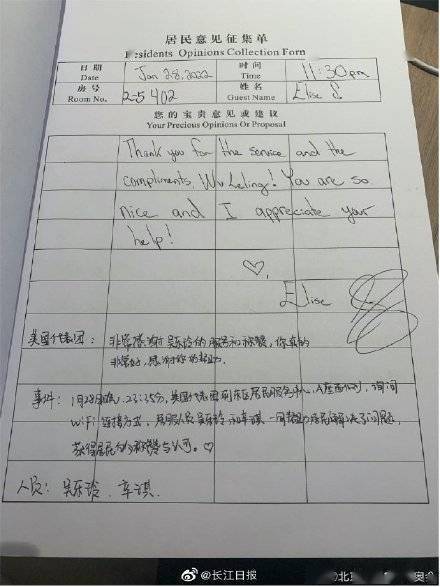 居民意见征集单
Residents Opinions Collection Form
日期 Date Jan 28, 2022 时间 Time 11:30pm
房号 Room No. 2-5 402 姓名 Guest Name Elise S
您的宝贵意见或建议
Your Precious Opinions Or Proposal
Thank you for the service and the
compliments, Wu Leling! You are so
nice and I appreciate your
help!
♡,
Elise
美国代表团: 非常感谢吴乐玲的服务和称赞,你真的
非常好,感谢你的帮助.
事件: 1月28日晚,23:35分,美国代表团前来居民服务中心,询问
WiFi连接方式,居服人员吴乐玲和辛谋一同帮助居民解决了问题,
获得居民的称赞与认可。♡
人员: 吴乐玲、辛谋.
@长江日报